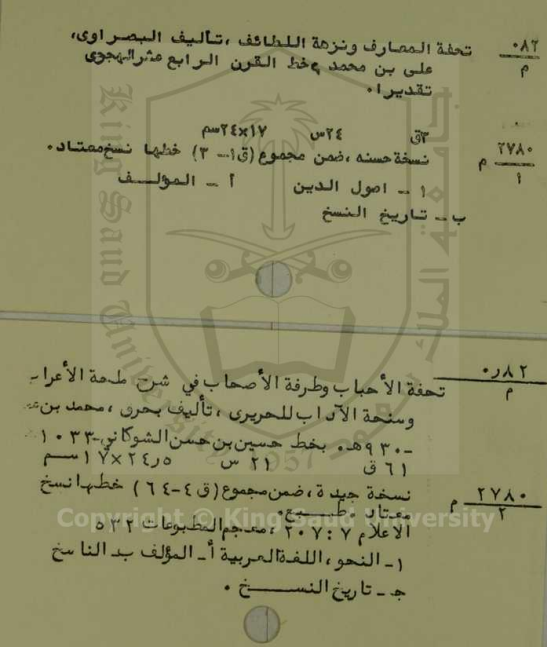 ٠٨٢
م
تحفة المعارف ونزهة اللطائف ،تأليف البصراوى،
على بن محمد بخط القرن الرابع عشر الهجرى
تقديرا٠
٢٧٨٠ م
١
٣ق ٢٤س ١٧×٢٤سم
نسخة حسنه ،ضمن مجموع (ق١- ٣) خطها نسخ معتاد٠
١ - اصول الدين أ - المؤلف
ب - تاريخ النسخ
٨٢ر٠
م
تحفة الأحباب وطرفة الأصحاب في شرح ملحة الأعراب
وسنحة الآداب للحريرى ، تأليف بحرق ،محمد بن
-٩٣٠هـ٠ بخط حسين بن حسن الشوكاني-١٠٣٣
٦١ ق ٢١ س ٥ر٢٤×١٧سم
٢٧٨٠ م
٢
نسخة جيدة ،ضمن مجموع (ق٤-٦٤) خطها نسخ
معتاد طبع٠
الاعلام ٧ :٢٠٧ ،معجم المطبوعات ٥٣٢
١- النحو ،اللغة العربية أ- المؤلف ب- الناسخ
ج - تاريخ النسخ ٠
King Saud University
1957
Copyright © King Saud University